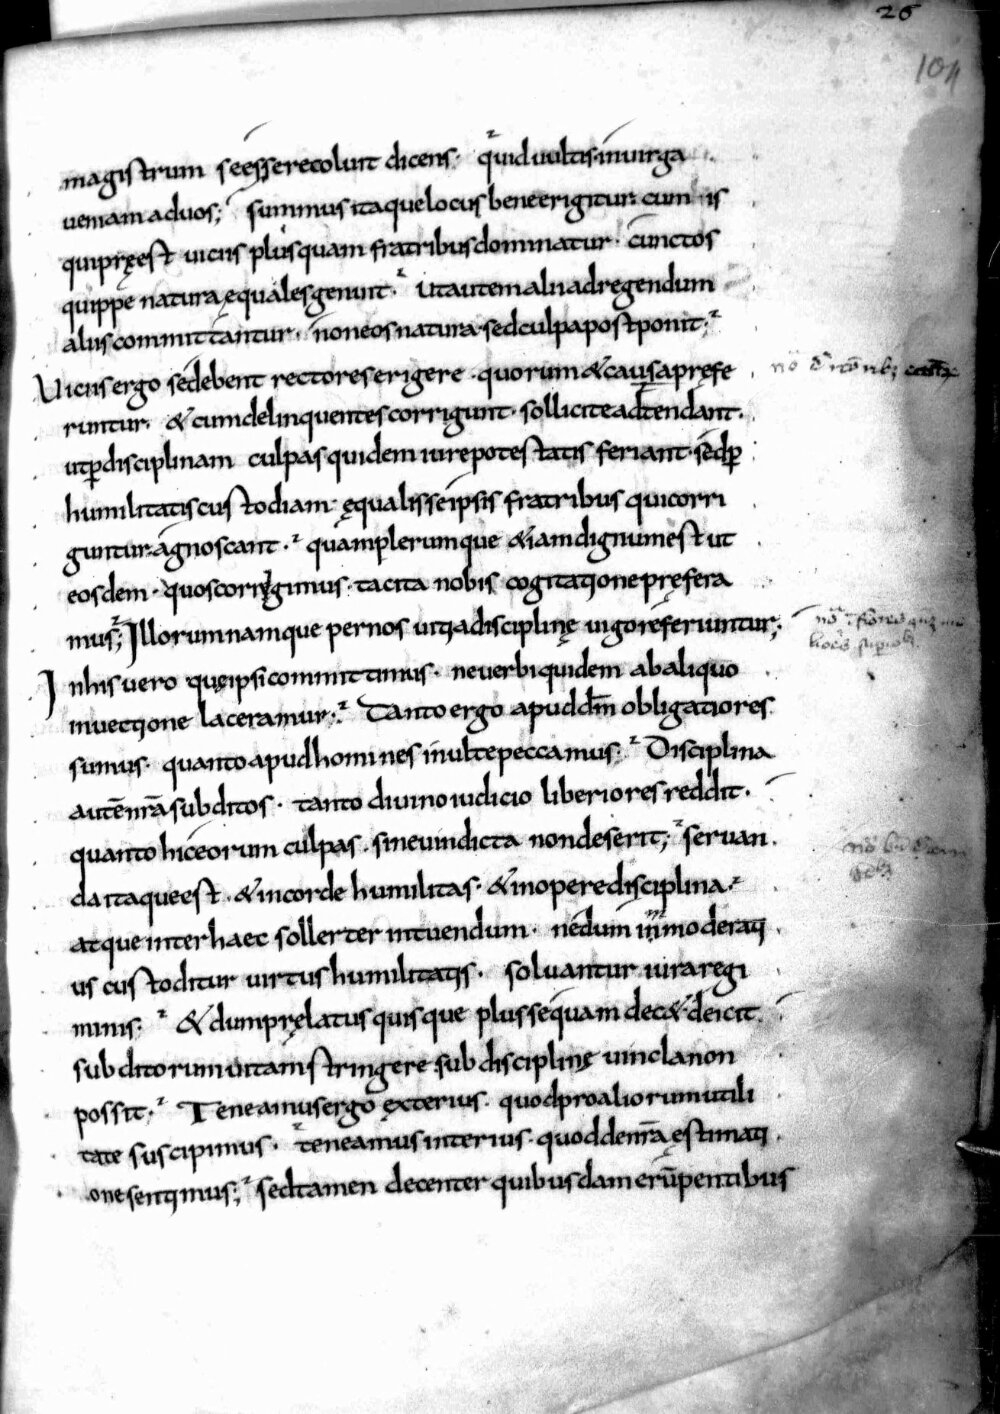 26
104
magistrum se esse recoluit dicens· quid vultis· in uirga
ueniam ad uos; summus itaque locus bene erigitur· cum is
qui pręest uiciis plus quam fratribus dominatur· cunctos
quippe natura ęquales genuit· Ut autem alii ad regendum
aliis committantur· non eos natura· sed culpa postponit;
Uiciis ergo se debent rectores erigere· quorum & causa pręfe
runtur· & cum delinquentes corrigunt· sollicite adtendant·
ut ꝑ disciplinam culpas quidem iure potestatis feriant· sed ꝑ
humilitatis custodiam· ęqualis se ipsis fratribus qui corri
guntur· agnoscant· quamplerumque & iam dignum est ut
eosdem· quos corrigimus· tacita nobis cogitatione pręfera
mus; Illorum namque per nos uitia disciplinę uigore feriuntur;
In his uero quę ipsi committimus· ne uerbi quidem ab aliquo
inuectione laceramur; Tanto ergo apud dm̄ obligatiores
sumus· quanto apud homines inulte peccamus· Disciplina
autē nr̄a subditos· tanto diuino iudicio liberiores reddit·
quanto hic eorum culpas· sine uindicta non deserit; seruan
da itaque est· & in corde humilitas· & in opere disciplina·
atque inter haec sollerter intuendum· ne dum inmoderati
us custoditur uirtus humilitatis· soluantur iura regi
minis· & dum pręlatus quisque plus se quam dec& deicit
subditorum uitam stringere sub disciplinę uincla non
possit· Teneamus ergo exterius· quod pro aliorum utili
tate suscipimus· teneamus interius· quod de nr̄a ęstimati
one sentimus; sed tamen decenter quibusdam erūpentibus